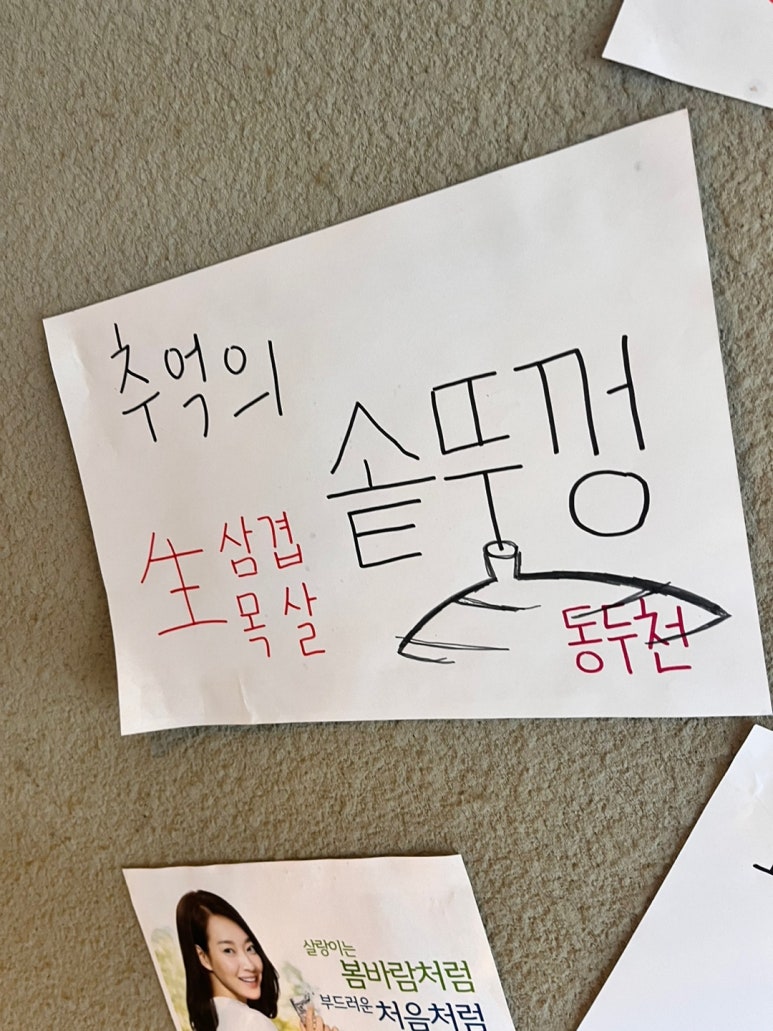 추억의
솥뚜껑
生 삼겹
목살
동두천
살랑이는
봄바람처럼
부드러운 처음처럼